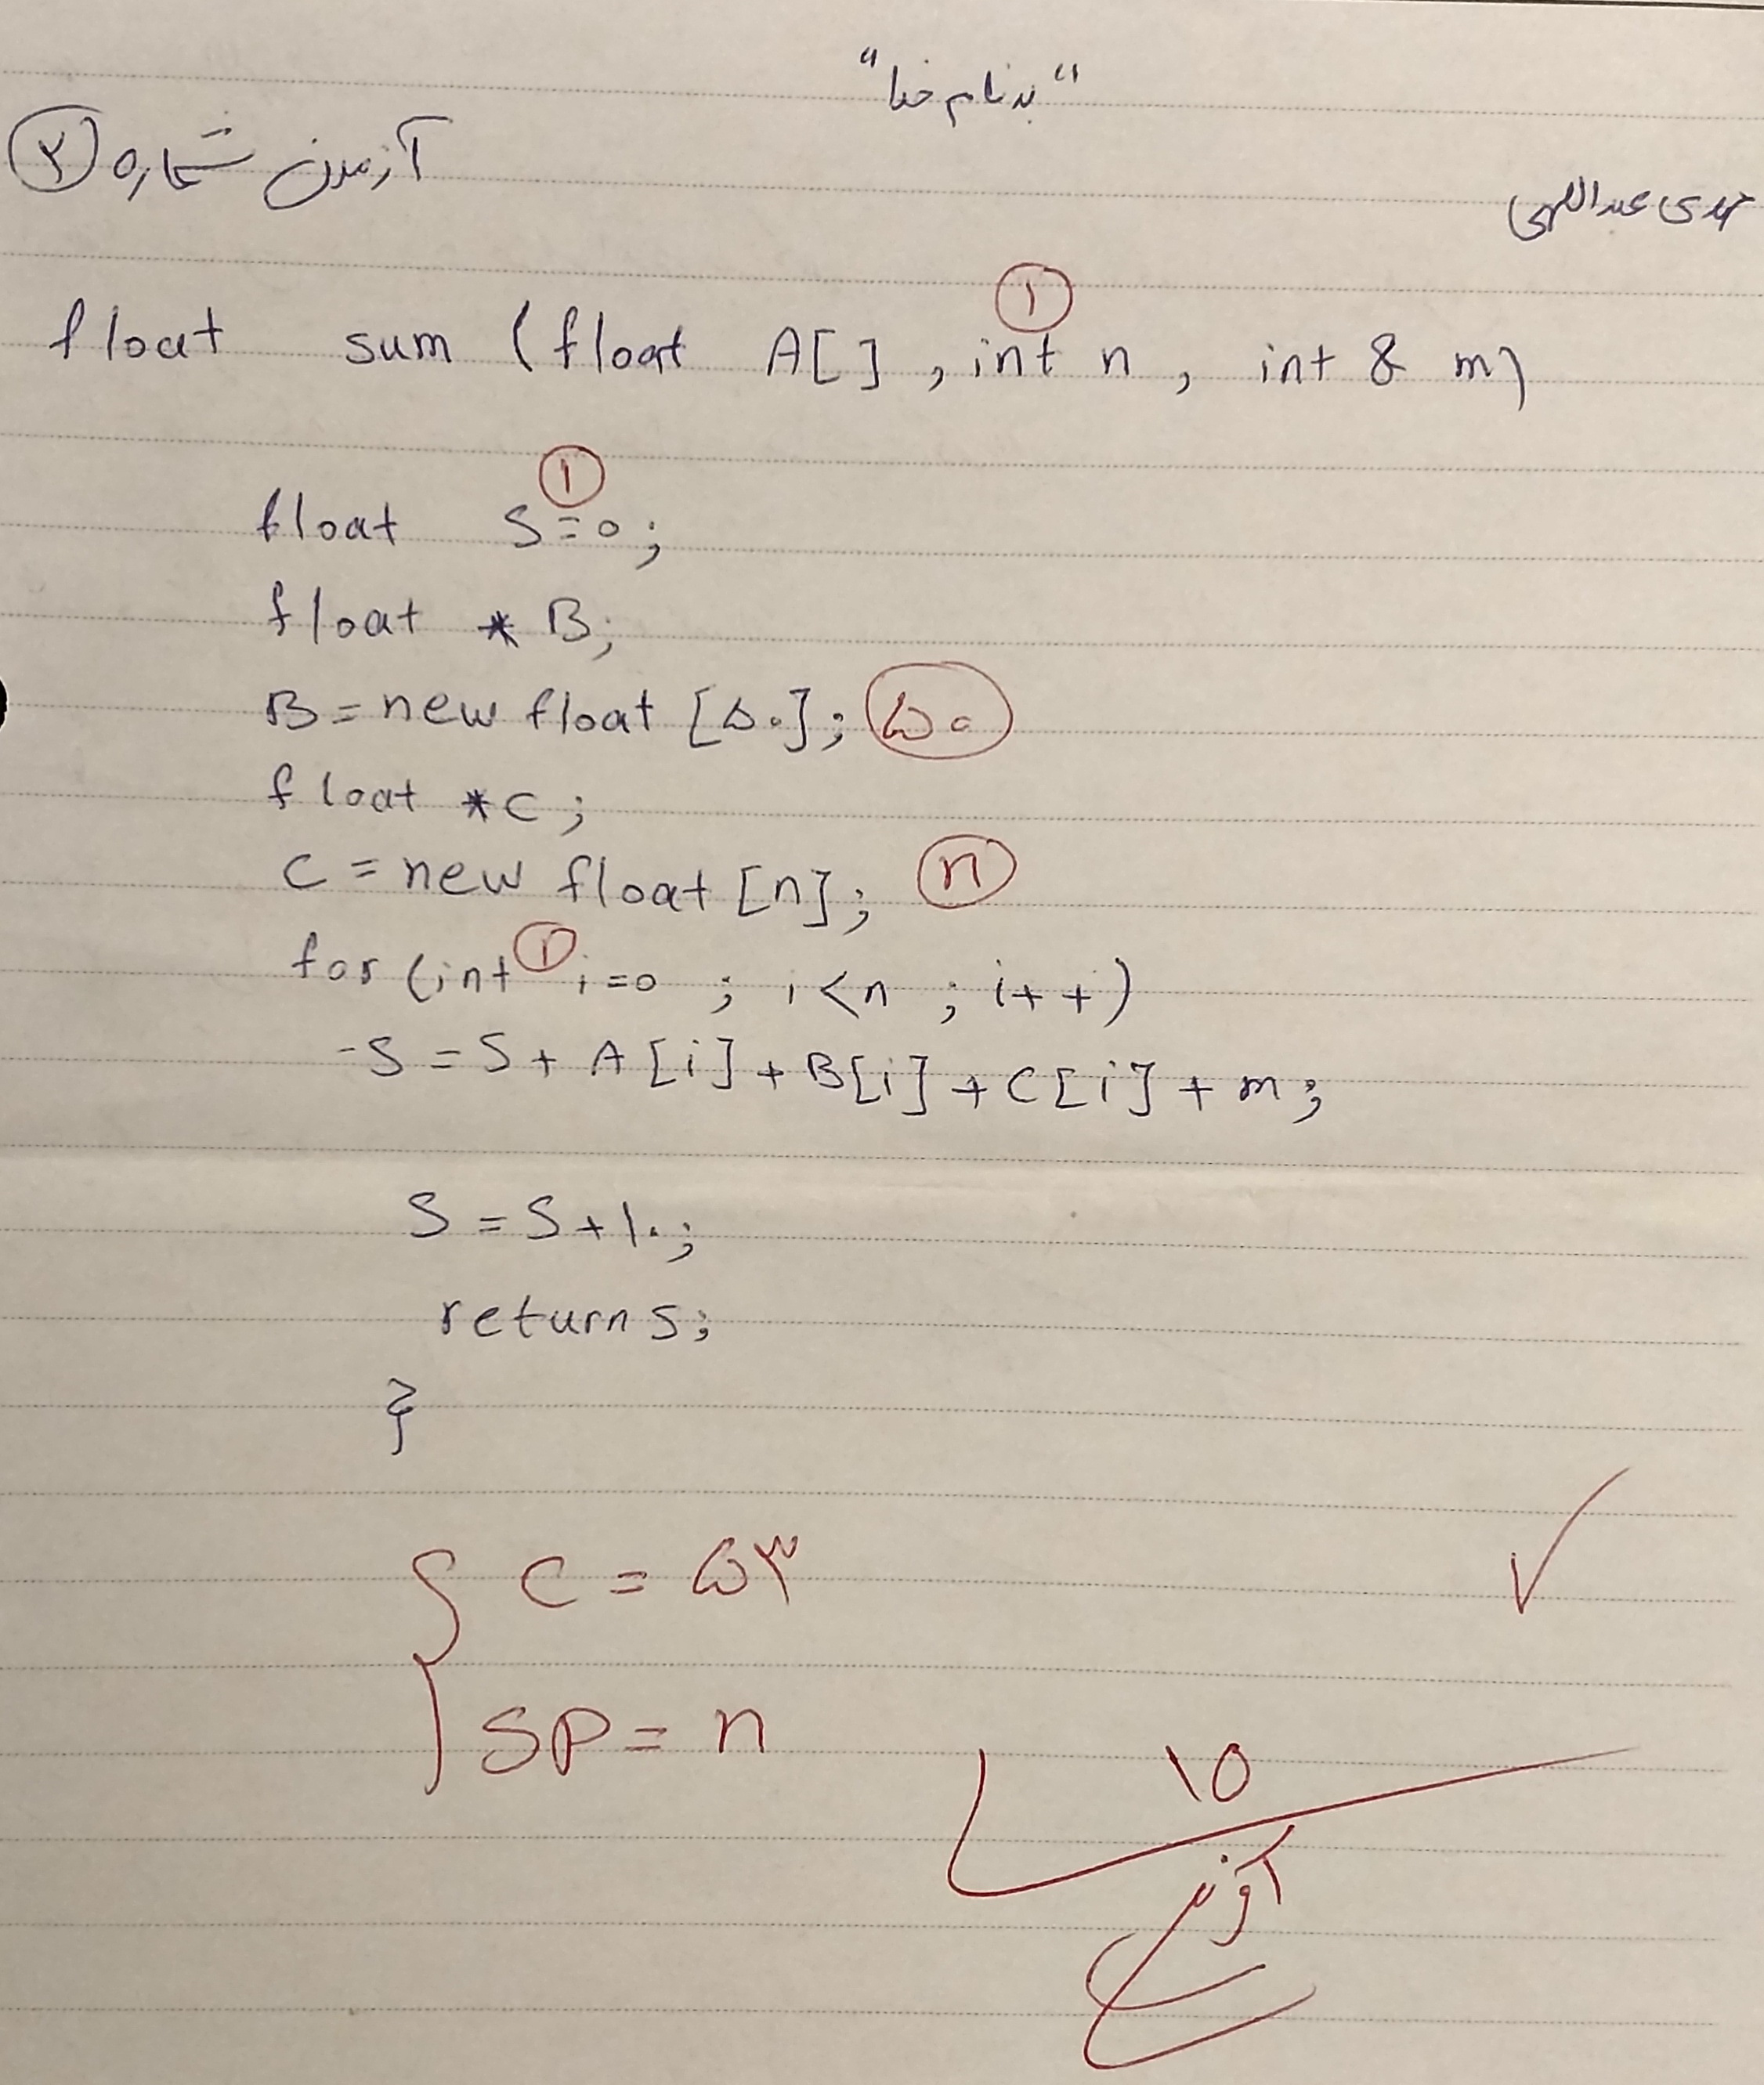 "بنام خدا"
آزمون شماره ۲
مهدی عبداللهی
۱
float sum (float A[], int n, int & m)
۱
float S=0;
float * B;
B = new float [۵۰]; ۵۰
float *C;
C = new float [n]; n
for (int ۱ i=0 ; i<n ; i++)
-S = S + A[i] + B[i] + C[i] + m;
S = S + ۱۰;
return s;
}
{ C = ۵۳
SP = n
۱۵